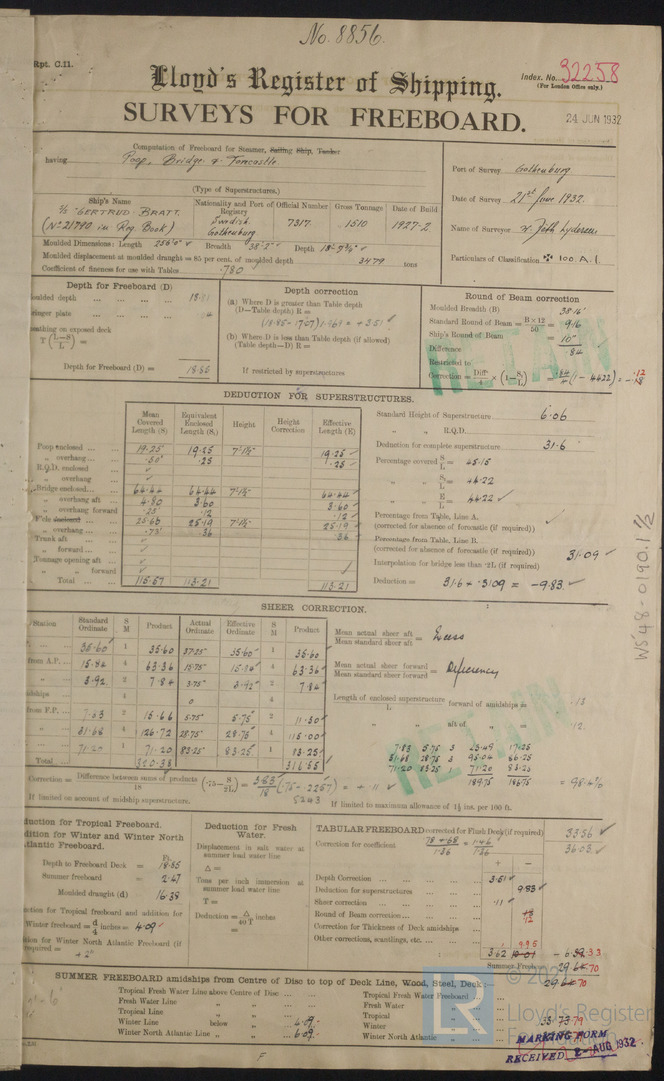 No. 8856.
Rpt. C.11.
Lloyd's Register of Shipping.
Index. No. 32258
(For London Office only.)
SURVEYS FOR FREEBOARD.
24 JUN 1932
Computation of Freeboard for Steamer, Sailing Ship, Tanker
having Poop, Bridge & Forecastle
(Type of Superstructures.)
Port of Survey Gothenburg
Date of Survey 21st June 1932.
Name of Surveyor
Particulars of Classification ✠ 100 A.1.
Ship's Name
Nationality and Port of Registry
Official Number
Gross Tonnage
Date of Build
S/S "GERTRUD BRATT"
(No 21790 in Reg. Book)
Swedish
Gothenburg
7317
1510
1927-2
Moulded Dimensions: Length 256'0" Breadth 38'-2" Depth
Moulded displacement at moulded draught = 85 per cent. of moulded depth 3479 tons
Coefficient of fineness for use with Tables .780
Depth for Freeboard (D)
oulded depth
ringer plate
eathing on exposed deck
T (L-S/L) =
Depth for Freeboard (D) = 18.85
Depth correction
(a) Where D is greater than Table depth
(D—Table depth) R =
(b) Where D is less than Table depth (if allowed)
(Table depth—D) R =
If restricted by superstructures
Round of Beam correction
Moulded Breadth (B) 38.16
Standard Round of Beam = B × 12 / 50 = 9.16
Ship's Round of Beam = 10"
Difference .84
Restricted to
Correction = Diff / 4 × (1 - S/L) = .84/4 (1 - .4422) = -.12
RETAIN
DEDUCTION FOR SUPERSTRUCTURES.
Mean Covered Length (S)
Equivalent Enclosed Length (S₁)
Height
Height Correction
Effective Length (E)
Poop enclosed 19.25 19.25 7'1½" 19.25
„ overhang .50 .25 .25
R.Q.D. enclosed
„ overhang
Bridge enclosed 64.44 64.44 7'1½" 64.44
„ overhang aft 4.80 3.60 3.60
„ overhang forward .25 .12 .12
F'cle enclosed 25.66 25.19 7'1½" 25.19
„ overhang .73 .36 .36
Trunk aft
„ forward
Tonnage opening aft
„ „ forward
Total 115.67 113.21 113.21
Standard Height of Superstructure 6.06
„ „ R.Q.D.
Deduction for complete superstructure 31.6
Percentage covered S/L = 45.15
„ S₁/L = 44.22
„ E/L = 44.22
Percentage from Table, Line A.
(corrected for absence of forecastle (if required))
Percentage from Table, Line B.
(corrected for absence of forecastle (if required)) 31.09
Interpolation for bridge less than .2L (if required)
Deduction = 31.6 × .3109 = -9.83
W548-0190.1½
SHEER CORRECTION.
Station
Standard Ordinate
S M
Product
Actual Ordinate
Effective Ordinate
S M
Product
35.60 1 35.60 37.25" 35.60 1 35.60
from A.P. 15.84 4 63.36 15.75" 15.84 4 63.36
„ 3.92 2 7.84 3.75" 3.92 2 7.84
idships 4 0 4
from F.P. 7.83 2 15.66 5.75" 5.75" 2 11.50
„ 31.68 4 126.72 28.75" 28.75" 4 115.00
„ 71.20 1 71.20 83.25 83.25 1 83.25
Total 320.38 316.55
Mean actual sheer aft / Mean standard sheer aft = Excess
Mean actual sheer forward / Mean standard sheer forward = Deficiency
Length of enclosed superstructure / L forward of amidships = .13
„ „ aft of „ = .12
7.83 5.75 3 23.49 17.25
31.68 28.75 3 95.04 86.25
71.20 83.25 1 71.20 83.25
189.75 186.75
RETAIN
Correction = Difference between sums of products / 18 (.75 - S/2L) = 3.83/18 (.75 - .2257) = + .11
.5243
If limited on account of midship superstructure.
If limited to maximum allowance of 1½ ins. per 100 ft.
duction for Tropical Freeboard.
dition for Winter and Winter North
tlantic Freeboard.
Depth to Freeboard Deck = 18.85
Summer freeboard = 2.47
Moulded draught (d) 16.38
ction for Tropical freeboard and addition for
Winter freeboard = d/4 inches = 4.09
tion for Winter North Atlantic Freeboard (if
required = +2"
Deduction for Fresh Water.
Displacement in salt water at summer load water line
Δ =
Tons per inch immersion at summer load water line
T =
Deduction = Δ / 40 T inches
=
TABULAR FREEBOARD corrected for Flush Deck (if required) 33.56
Correction for coefficient .78 + .68 / 1.36 = 1.46 / 1.36 36.03
+ -
Depth Correction 3.51
Deduction for superstructures 9.83
Sheer correction .11
Round of Beam correction .12
Correction for Thickness of Deck amidships
Other corrections, scantlings, etc.
3.62 9.95 - 6.33
Summer Freeboard = 29.70
SUMMER FREEBOARD amidships from Centre of Disc to top of Deck Line, Wood, Steel, Deck: 29.70
Tropical Fresh Water Line above Centre of Disc
Fresh Water Line „ „
Tropical Line „ „
Winter Line below „ 4.09
Winter North Atlantic Line „ „ 6.09
Tropical Fresh Water Freeboard
Fresh Water „
Tropical „
Winter „ 33.79
Winter North Atlantic „
MARKING FORM
RECEIVED 2-AUG 1932
LR
© 202
Lloyd's Register
Fo